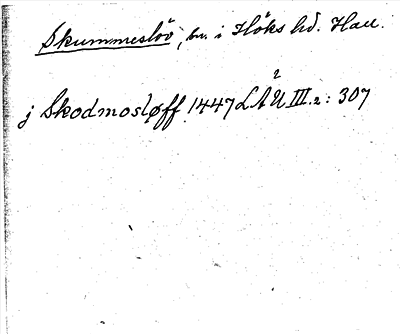 Skummeslöv, sn. i Höks hd. Hall.
j Skodmosløff 1447 LÄU² III.2: 307